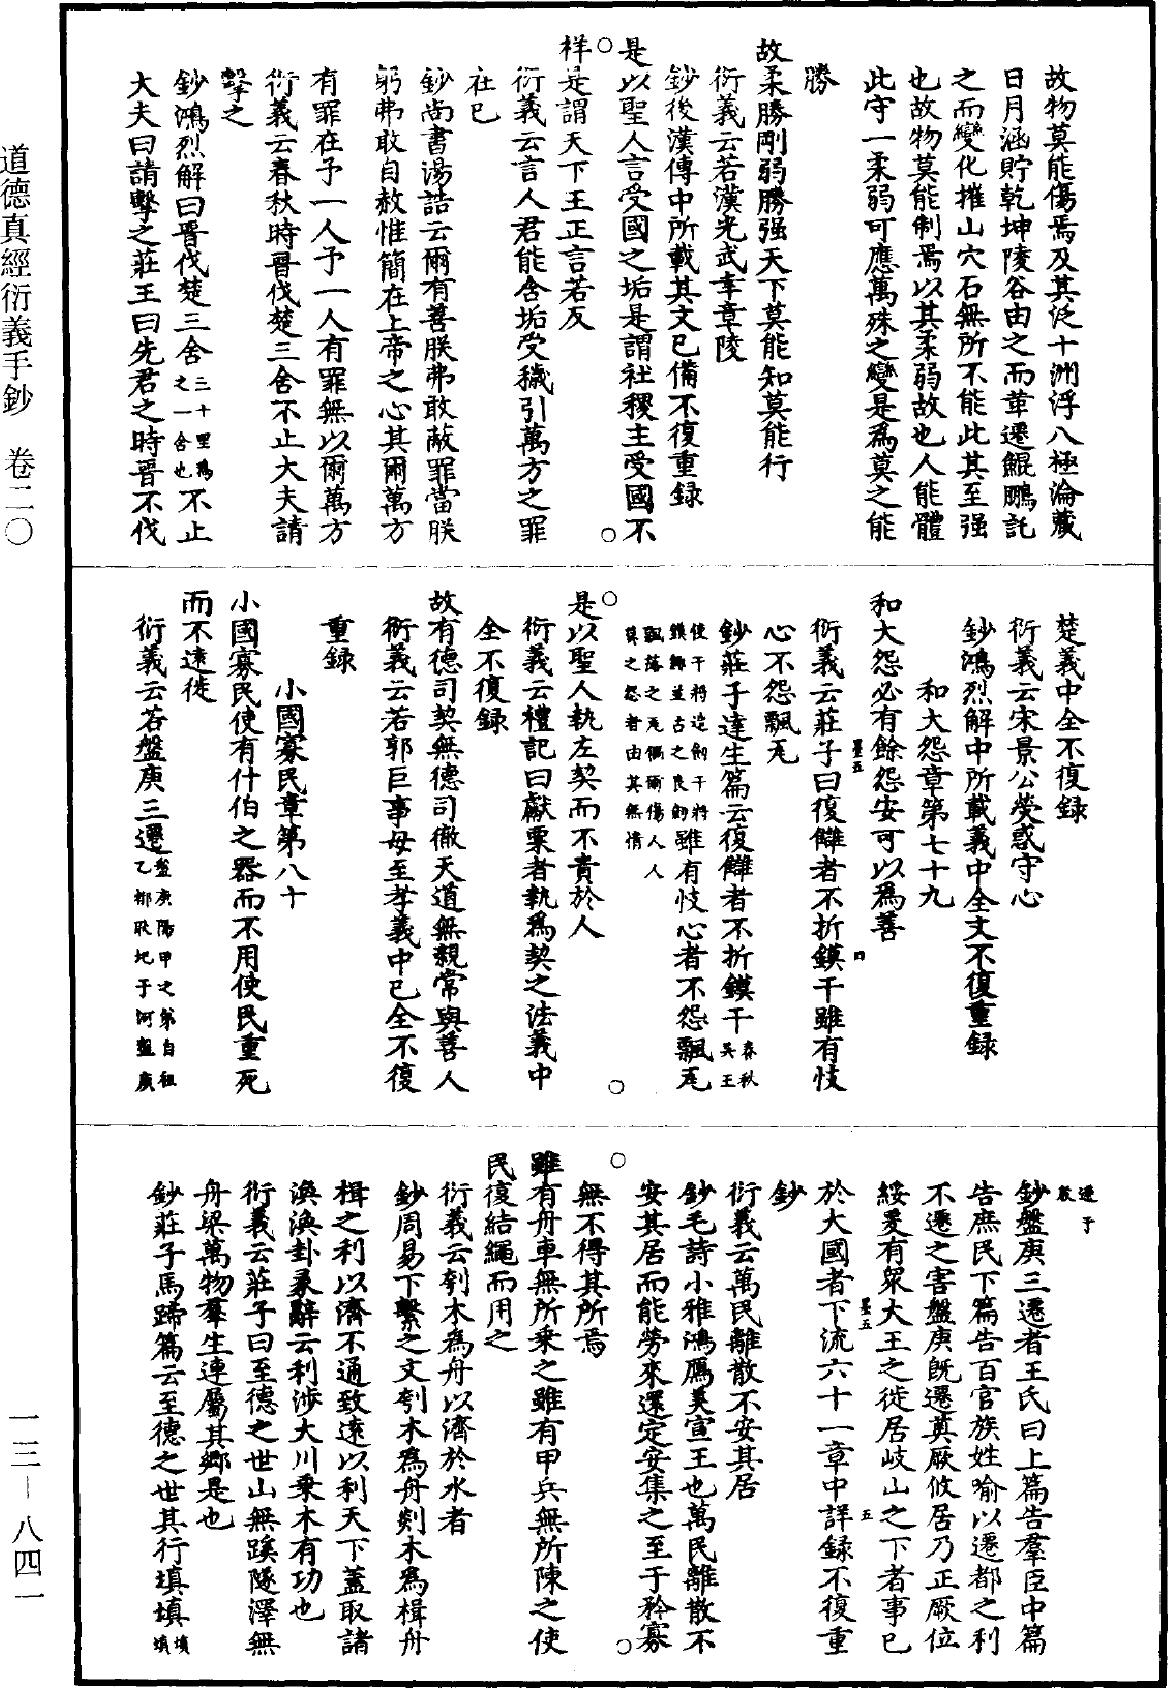 故物莫能傷焉及其泛十洲浮八極淪藏
日月涵貯乾坤陵谷由之而革遷鯤鵬託
之而變化摧山穴石無所不能此其至强
也故物莫能制焉以其柔弱故也人能體
此守一柔弱可應萬殊之變是爲莫之能
勝
故柔勝剛弱勝强天下莫能知莫能行
衍義云若漢光武幸章陵
鈔後漢傳中所載其文已備不復重録
是以聖人言受國之垢是謂社稷主受國不
祥是謂天下王正言若反
衍義云言人君能含垢受穢引萬方之罪
社已
鈔尚書湯誥云爾有善朕弗敢蔽罪當朕
躬弗敢自赦惟簡在上帝之心其爾萬方
有罪在予一人予一人有罪無以爾萬方
衍義云春秋時晋伐楚三舍不止大夫請
擊之
鈔鴻烈解曰晋伐楚三舍三十里爲之一舍也不止
大夫曰請擊之莊王曰先君之時晋不伐
楚義中全不復録
衍義云宋景公熒惑守心
鈔鴻烈解中所載義中全文不復重録
和大怨章第七十九
和大怨必有餘怨安可以爲善
衍義云莊子曰復讎者不折鏌干雖有忮
心不怨飄瓦
鈔莊子達生篇云復讎者不折鏌干春秋吳王
使干將造劍干將鏌鋣並古之良劍雖有忮心者不怨飄瓦
飄落之瓦偶爾傷人人莫之怨者由其無情
是以聖人執左契而不責於人
衍義云禮記曰獻粟者執爲契之法義中
全不復録
故有德司契無德司徹天道無親常與善人
衍義云若郭巨事母至孝義中已全不復
重録
小國寡民章第八十
小國寡民使有什伯之器而不用使民重死
而不遠徙
衍義云若盤庚三遷盤庚陽甲之弟自祖乙都耿圮于河盤庚
遷于殷
鈔盤庚三遷者王氏曰上篇告羣臣中篇
告庶民下篇告百官族姓喻以遷都之利
不遷之害盤庚既遷奠厥攸居乃正厥位
綏爰有衆大王之徙居岐山之下者事已
於大國者下流六十一章中詳録不復重
鈔
衍義云萬民離散不安其居
鈔毛詩小雅鴻鴈美宣王也萬民離散不
安其居而能勞來還定安集之至于矜寡
無不得其所焉
雖有舟車無所乘之雖有甲兵無所陳之使
民復結繩而用之
衍義云刳木爲舟以濟於水者
鈔周易下繫之文刳木爲舟剡木爲楫舟
楫之利以濟不通致遠以利天下蓋取諸
渙渙卦彖辭云利涉大川乘木有功也
衍義云莊子曰至德之世山無蹊隧澤無
舟梁萬物羣生連屬其鄉是也
鈔莊子馬蹄篇云至德之世其行填填填填
道德真經衍義手鈔 卷二〇
一三—八四一